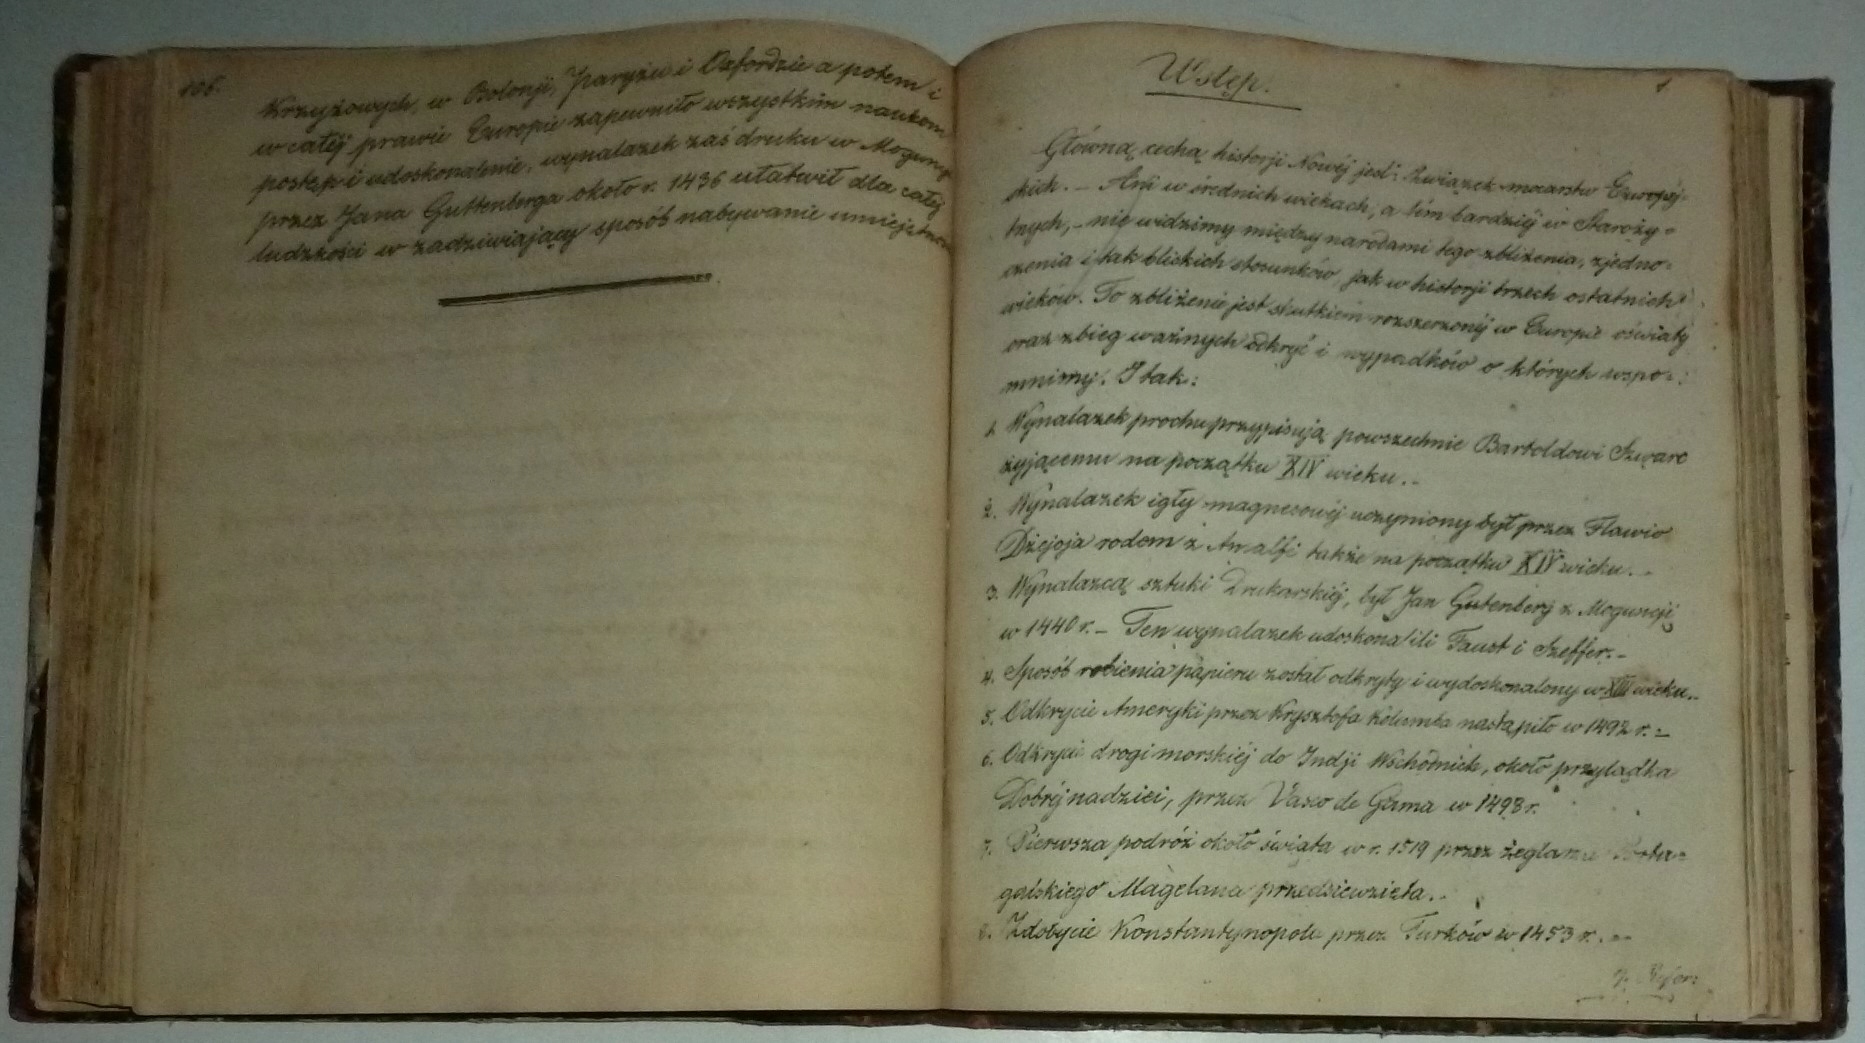 106.
Krzyżowych, w Bolonji, Paryżu i Oxfordzie a potem i
w całej prawie Europie zapewniło wszystkim naukom
postęp i udoskonalenie, wynalazek zaś druku w Moguncyi
przez Jana Guttenberga około r. 1436 ułatwił dla całej
ludzkości w zadziwiający sposób nabywanie umiejętnos
Wstęp.
1
Główną cechą historji Nowéj jest: Związek mocarstw Européj-
skich. – Ani w średnich wiekach, a tém bardziéj w Staroży-
tnych, – nie widzimy między narodami tego zbliżenia, zjedno-
czenia i tak bliskich stosunków, jak w historji trzech ostatnich
wieków. To zbliżenie jest skutkiem rozszerzonéj w Europie oświaty
oraz zbieg ważnych odkryć i wypadków o których wspo-
mnimy. I tak:
1. Wynalazek prochu przypisują powszechnie Bartoldowi Szwarc
żyjącemu na początku XIV wieku. –
2. Wynalazek igły magnesowéj uczyniony był przez Flawio
Dżejoja rodem z Amalfi także na początku XIV wieku. –
3. Wynalazcą sztuki Drukarskiéj, był Jan Gutenberg z Moguncji
w 1440 r. – Ten wynalazek udoskonalili Faust i Szeffer. –
4. Sposób robienia papieru został odkryty i wydoskonalony w XIII wieku. –
5. Odkrycie Ameryki przez Krysztofa Kolumba nastąpiło w 1492 r. –
6. Odkrycie drogi morskiéj do Indji Wschodnich, około przylądka
Dobréj nadziei, przez Vasco de Gama w 1498 r.
7. Pierwsza podróż około świata w r. 1519 przez żeglarza Portu-
galskiego Magelana przedsięwzięta. –
8. Zdobycie Konstantynopola przez Turków w 1453 r. –
9. Refor: